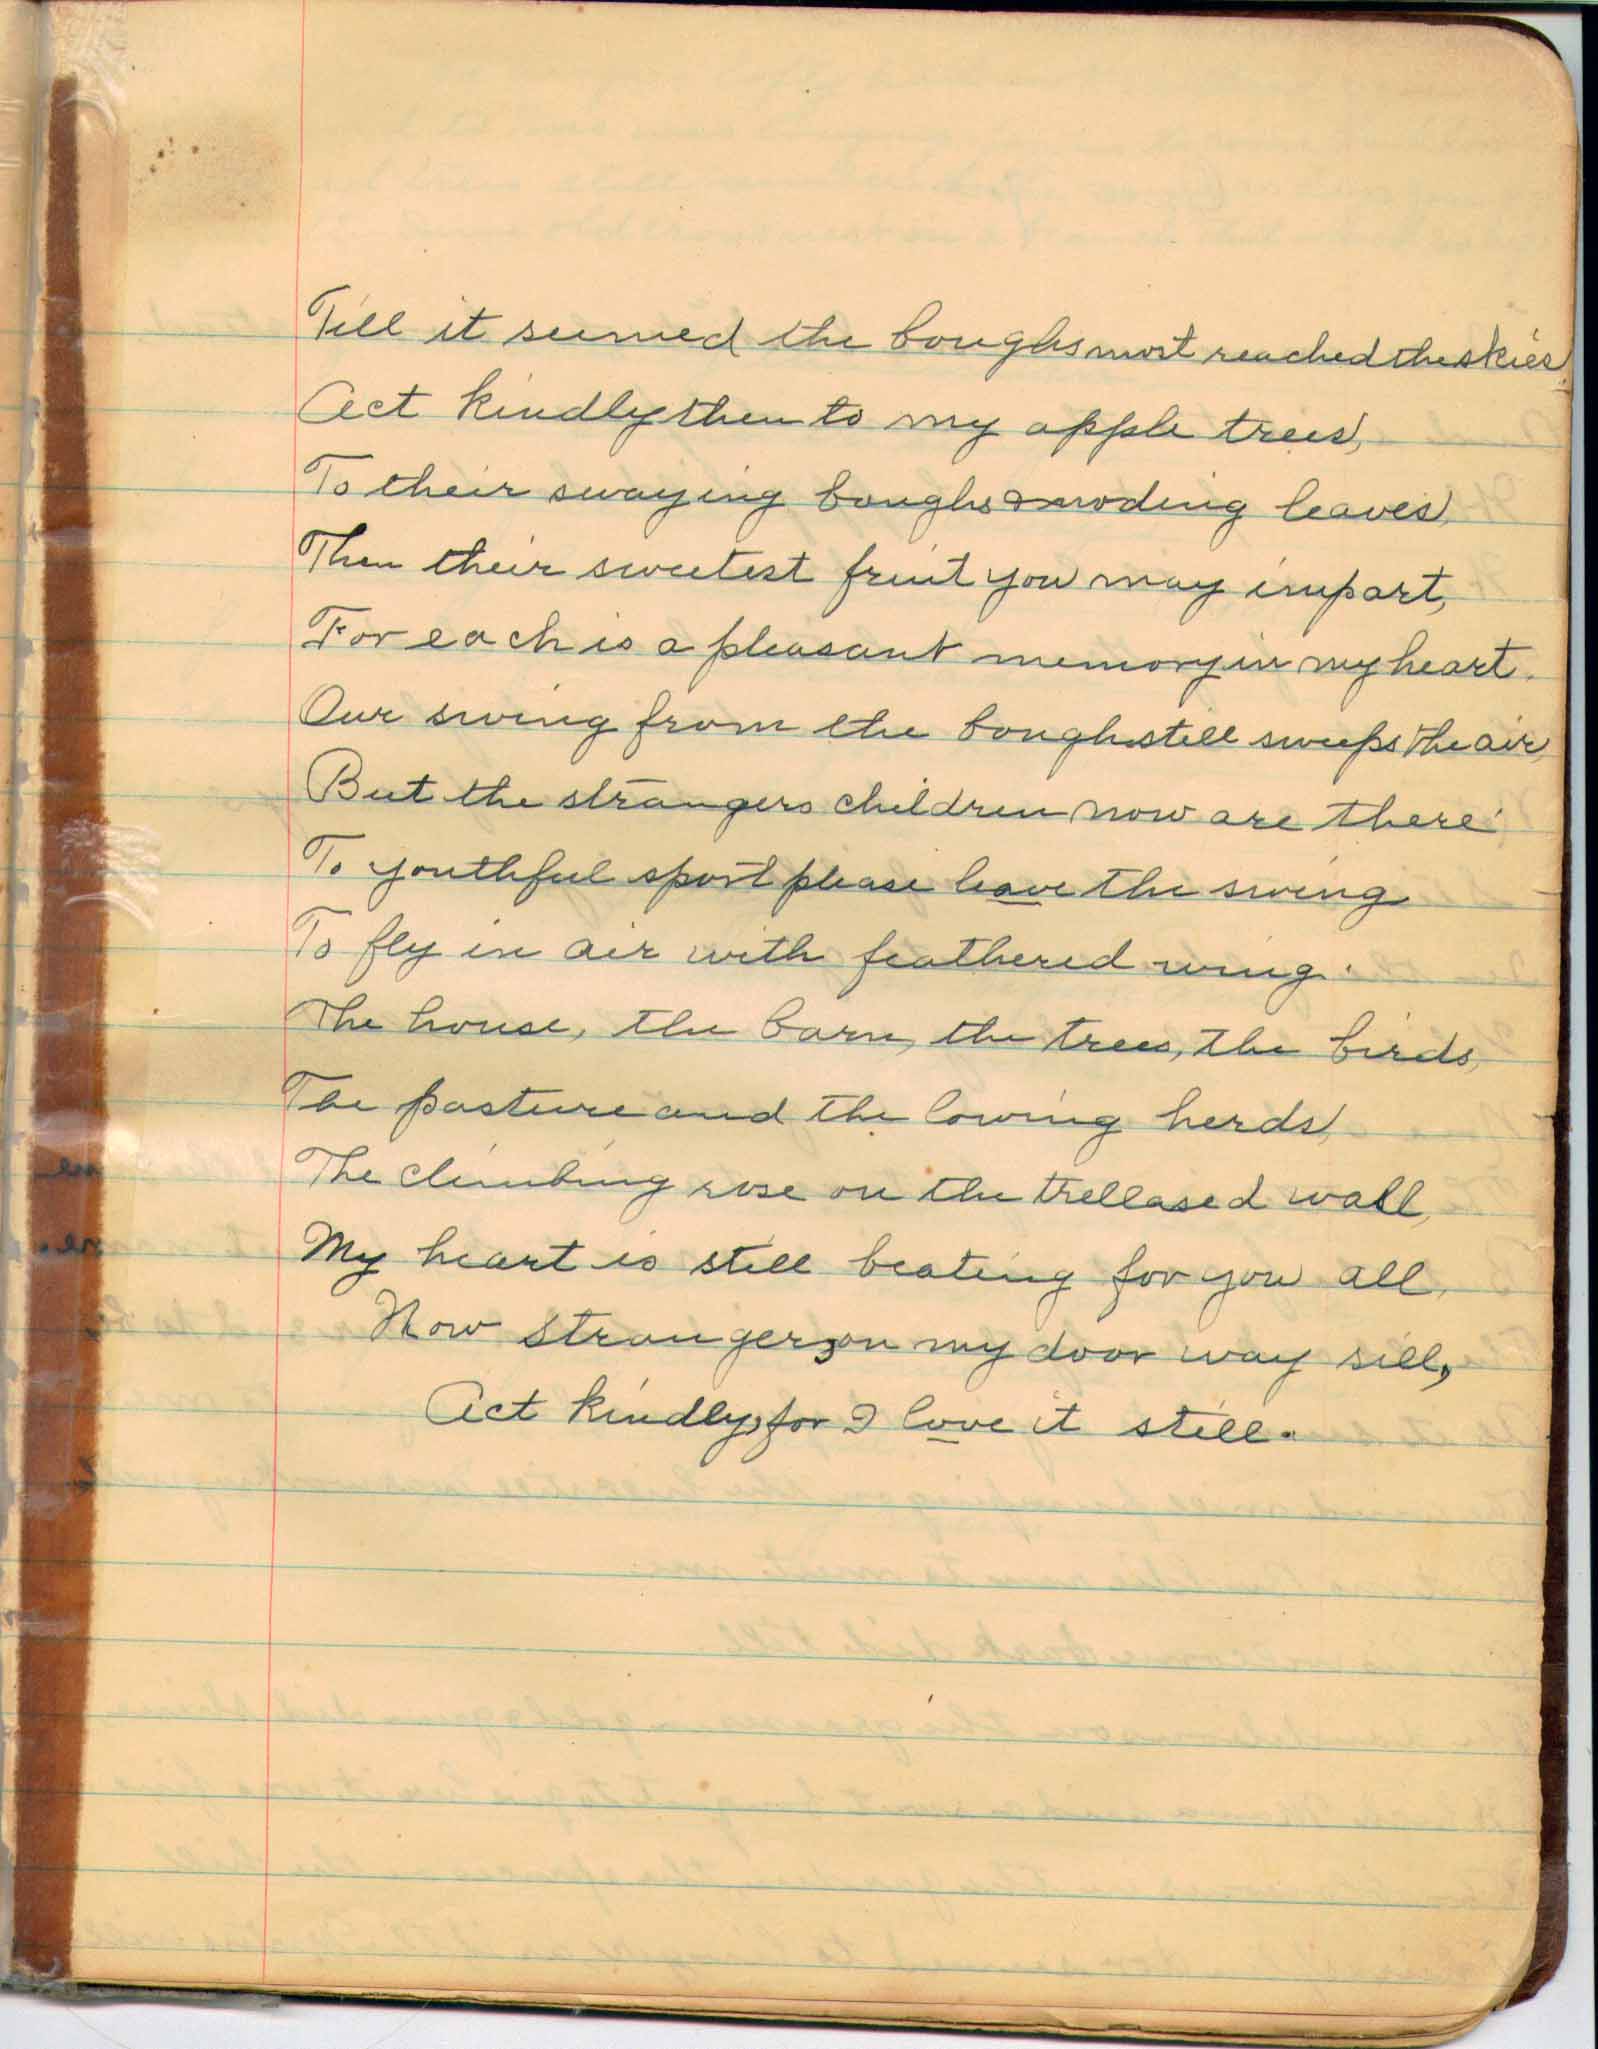 Till it seemed the boughs most reached the skies.
Act kindly then to my apple trees,
To their swaying boughs & noding leaves,
Then their sweetest fruit you may impart,
For each is a pleasant memory in my heart.
Our swing from the bough still sweeps the air,
But the strangers children now are there.
To youthful sport please leave the swing
To fly in air with feathered wing.
The house, the barn, the trees, the birds,
The pasture and the lowing herds,
The climbing rose on the trellased wall,
My heart is still beating for you all,
Now stranger, on my door way sill,
Act kindly, for I love it still.